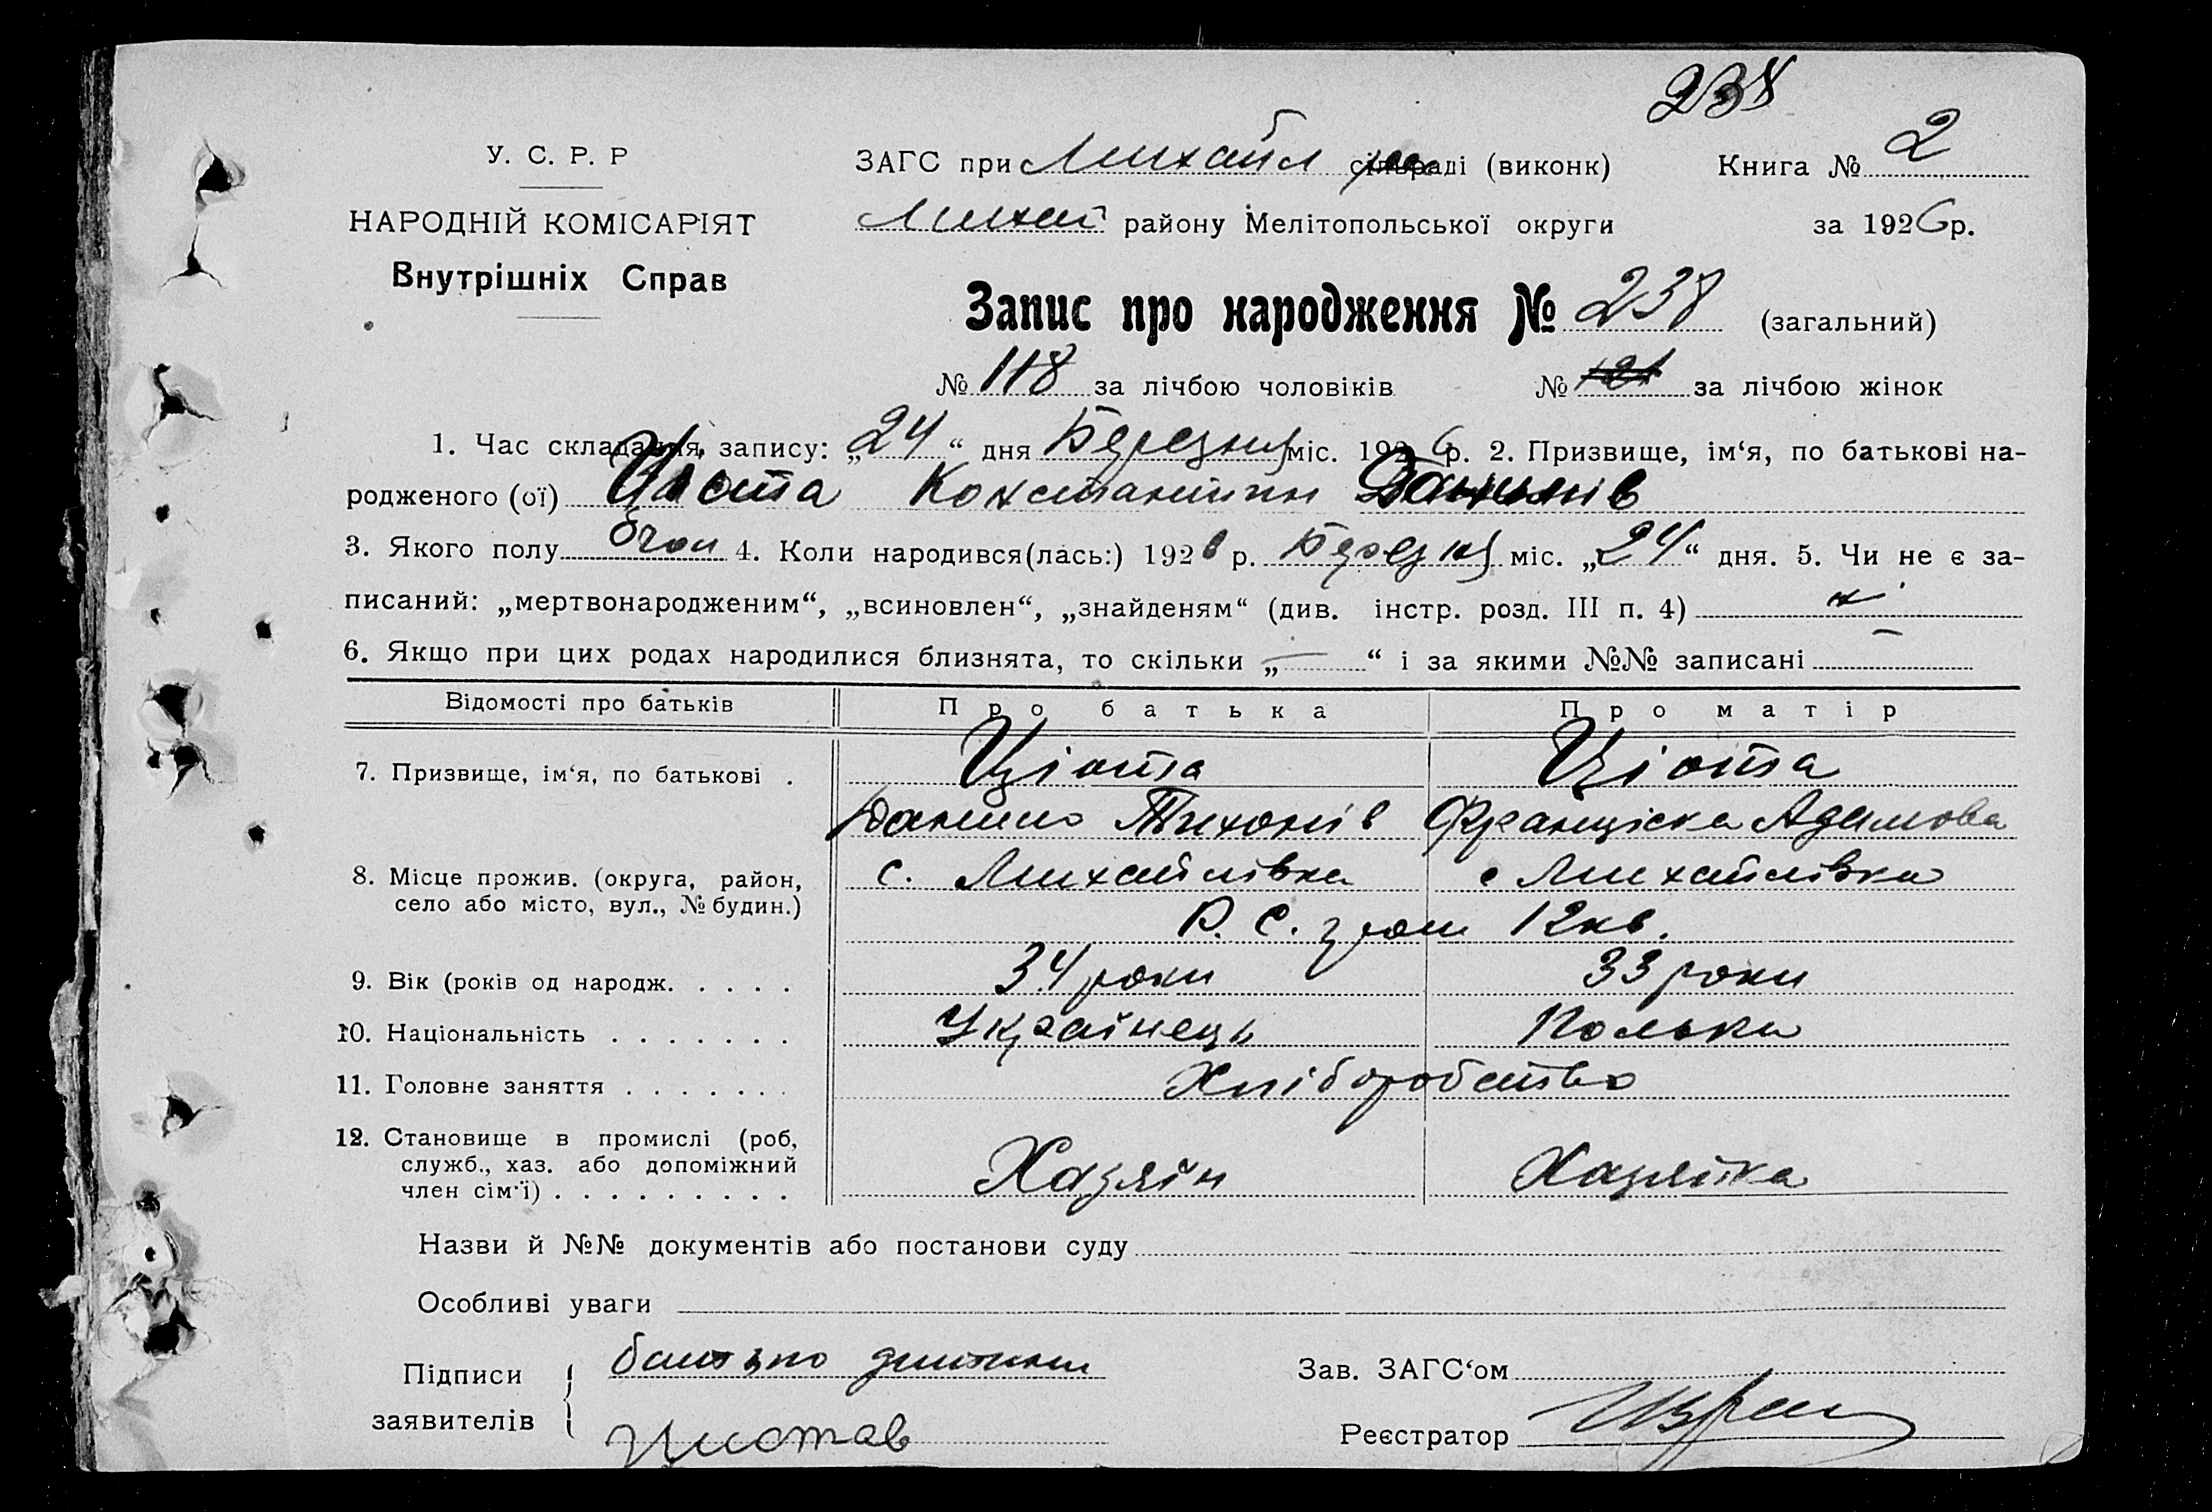 238
У. С. Р. Р
НАРОДНІЙ КОМІСАРІЯТ
Внутрішніх Справ
ЗАГС при Михайл сільраді (виконк) Книга № 2
Михай району Мелітопольської округи за 1926 р.
Запис про народження № 238 (загальний)
№ 118 за лічбою чоловіків № 121 за лічбою жінок
1. Час складання запису: „24“ дня Березня міс. 1926 р. 2. Призвище, ім‘я, по батькові на-
родженого (ої) Константин Данилів
3. Якого полу чол 4. Коли народився(лась:) 1926 р. Березня міс. „24“ дня. 5. Чи не є за-
писаний: „мертвонародженим“, „всиновлен“, „знайденям“ (див. інстр. розд. III п. 4) ні
6. Якщо при цих родах народилися близнята, то скільки „—“ і за якими №№ записані —
Відомості про батьків Про батька Про матір
7. Призвище, ім‘я, по батькові . Ціота Ціота
Данило Тихонів Франціска Адамова
8. Місце прожив. (округа, район, село або місто, вул., № будин.) с. Михайлівка с Михайлівка
Р. С. гром 12 кв.
9. Вік (років од народж. . . . . 34 роки 33 роки
10. Національність . . . . . . . Українець Полька
11. Головне заняття . . . . . . . Хліборобство
12. Становище в промислі (роб, служб., хаз. або допоміжний член сім'ї) . . . . . . . . . Хазяїн Хазяйка
Назви й №№ документів або постанови суду
Особливі уваги
Підписи заявителів батько дитини
Зав. ЗАГС‘ом
Реєстратор